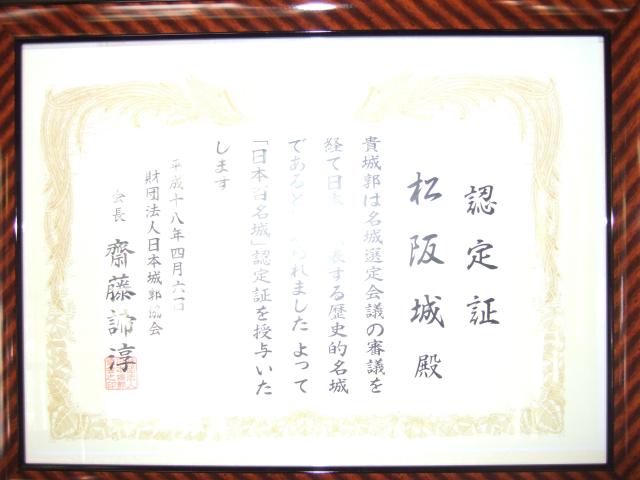 認定証
松阪城殿
貴城郭は名城選定会議の審議を
経て日本 表する歴史的名城
であると められました よって
「日本百名城」認定証を授与いた
します
平成十八年四月六日
財団法人日本城郭協会
会長 齋藤諦淳